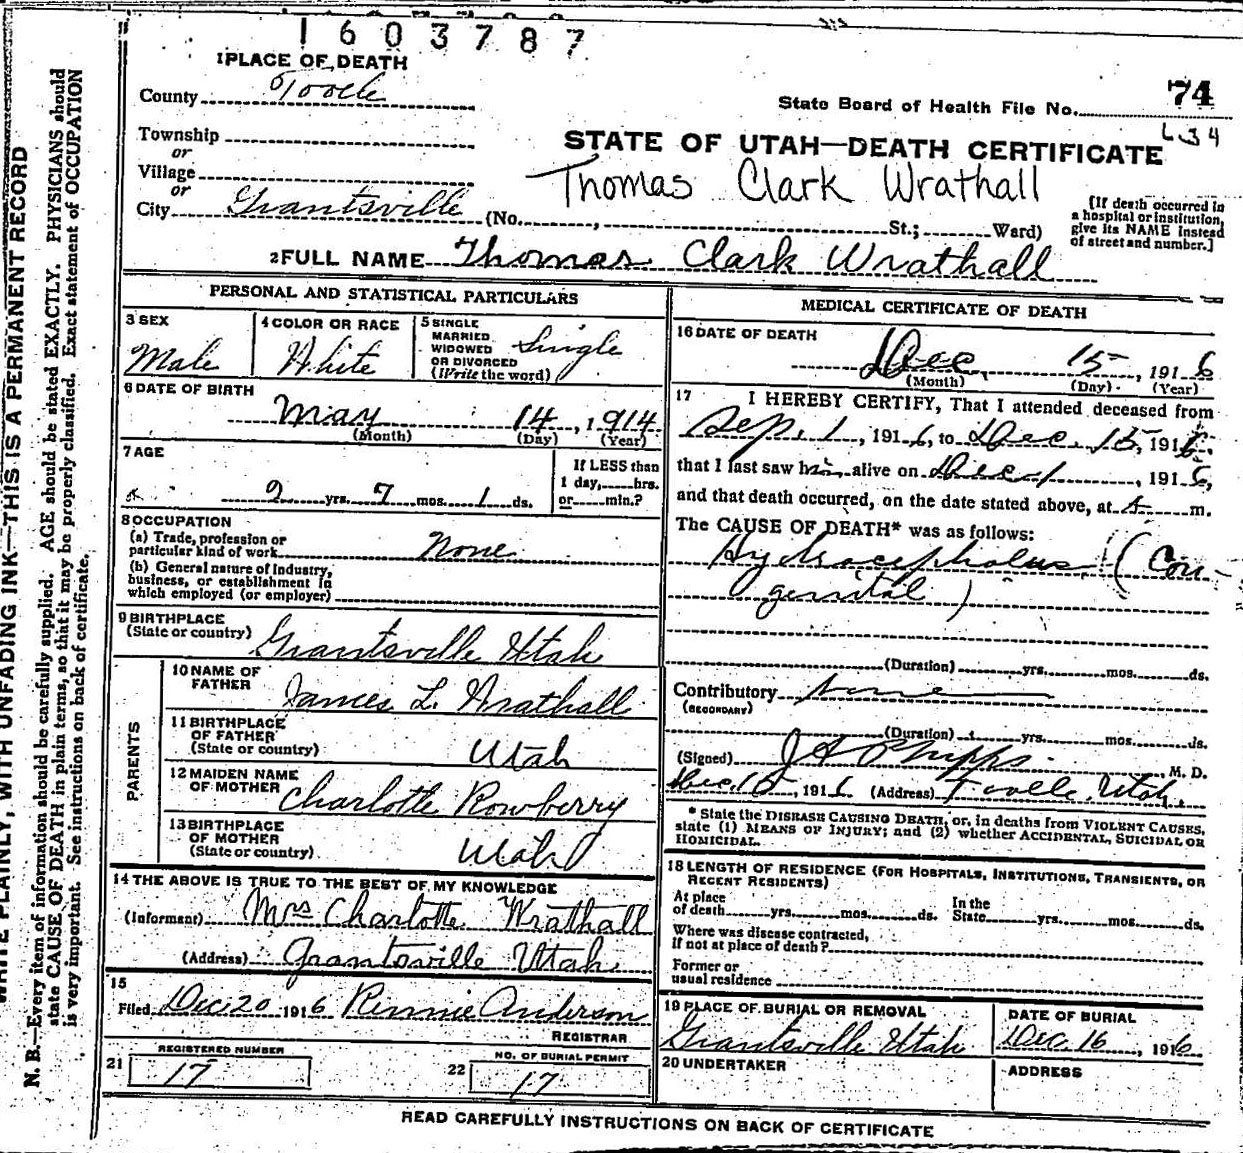 1603787
1 PLACE OF DEATH
County Tooele
State Board of Health File No. 74
L34
Township
or
Village
or
City Grantsville (No. , St.; Ward)
STATE OF UTAH—DEATH CERTIFICATE
Thomas Clark Wrathall
[If death occurred in
a hospital or institution,
give its NAME instead
of street and number.]
2 FULL NAME Thomas Clark Wrathall
PERSONAL AND STATISTICAL PARTICULARS
3 SEX
Male
4 COLOR OR RACE
White
5 SINGLE
MARRIED
WIDOWED
OR DIVORCED
(Write the word)
Single
6 DATE OF BIRTH
May 14, 1914
(Month) (Day) (Year)
7 AGE
2 yrs. 7 mos. 1 ds.
If LESS than
1 day, hrs.
or min.?
8 OCCUPATION
(a) Trade, profession or
particular kind of work None
(b) General nature of industry,
business, or establishment in
which employed (or employer)
9 BIRTHPLACE
(State or country) Grantsville Utah
PARENTS
10 NAME OF
FATHER James L. Wrathall
11 BIRTHPLACE
OF FATHER
(State or country) Utah
12 MAIDEN NAME
OF MOTHER Charlotte Rowberry
13 BIRTHPLACE
OF MOTHER
(State or country) Utah
14 THE ABOVE IS TRUE TO THE BEST OF MY KNOWLEDGE
(Informant) Mrs Charlotte Wrathall
(Address) Grantsville Utah
15
Filed Dec 20 1916 Rennie Anderson
REGISTRAR
21 REGISTERED NUMBER
17
22 NO. OF BURIAL PERMIT
17
MEDICAL CERTIFICATE OF DEATH
16 DATE OF DEATH
Dec. 15, 1916
(Month) (Day) (Year)
17 I HEREBY CERTIFY, That I attended deceased from
Sep. 1, 1916, to Dec. 15, 1916.
that I last saw him alive on Dec 1, 1916,
and that death occurred, on the date stated above, at m.
The CAUSE OF DEATH* was as follows:
Hydrocephalus (Con-
genital)
(Duration) yrs. mos. ds.
Contributory None
(SECONDARY)
(Duration) yrs. mos. ds.
(Signed) J A Phipps M. D.
Dec. 15, 1916 (Address) Tooele, Utah.
* State the DISEASE CAUSING DEATH, or, in deaths from VIOLENT CAUSES,
state (1) MEANS OF INJURY; and (2) whether ACCIDENTAL, SUICIDAL OR
HOMICIDAL.
18 LENGTH OF RESIDENCE (FOR HOSPITALS, INSTITUTIONS, TRANSIENTS, OR
RECENT RESIDENTS)
At place
of death yrs. mos. ds.
In the
State yrs. mos. ds.
Where was disease contracted,
If not at place of death?
Former or
usual residence
19 PLACE OF BURIAL OR REMOVAL
Grantsville Utah
DATE OF BURIAL
Dec. 16, 1916
20 UNDERTAKER
ADDRESS
READ CAREFULLY INSTRUCTIONS ON BACK OF CERTIFICATE
WRITE PLAINLY, WITH UNFADING INK—THIS IS A PERMANENT RECORD
N. B.—Every item of information should be carefully supplied. AGE should be stated EXACTLY. PHYSICIANS should
state CAUSE OF DEATH in plain terms, so that it may be properly classified. Exact statement of OCCUPATION
is very important. See instructions on back of certificate.